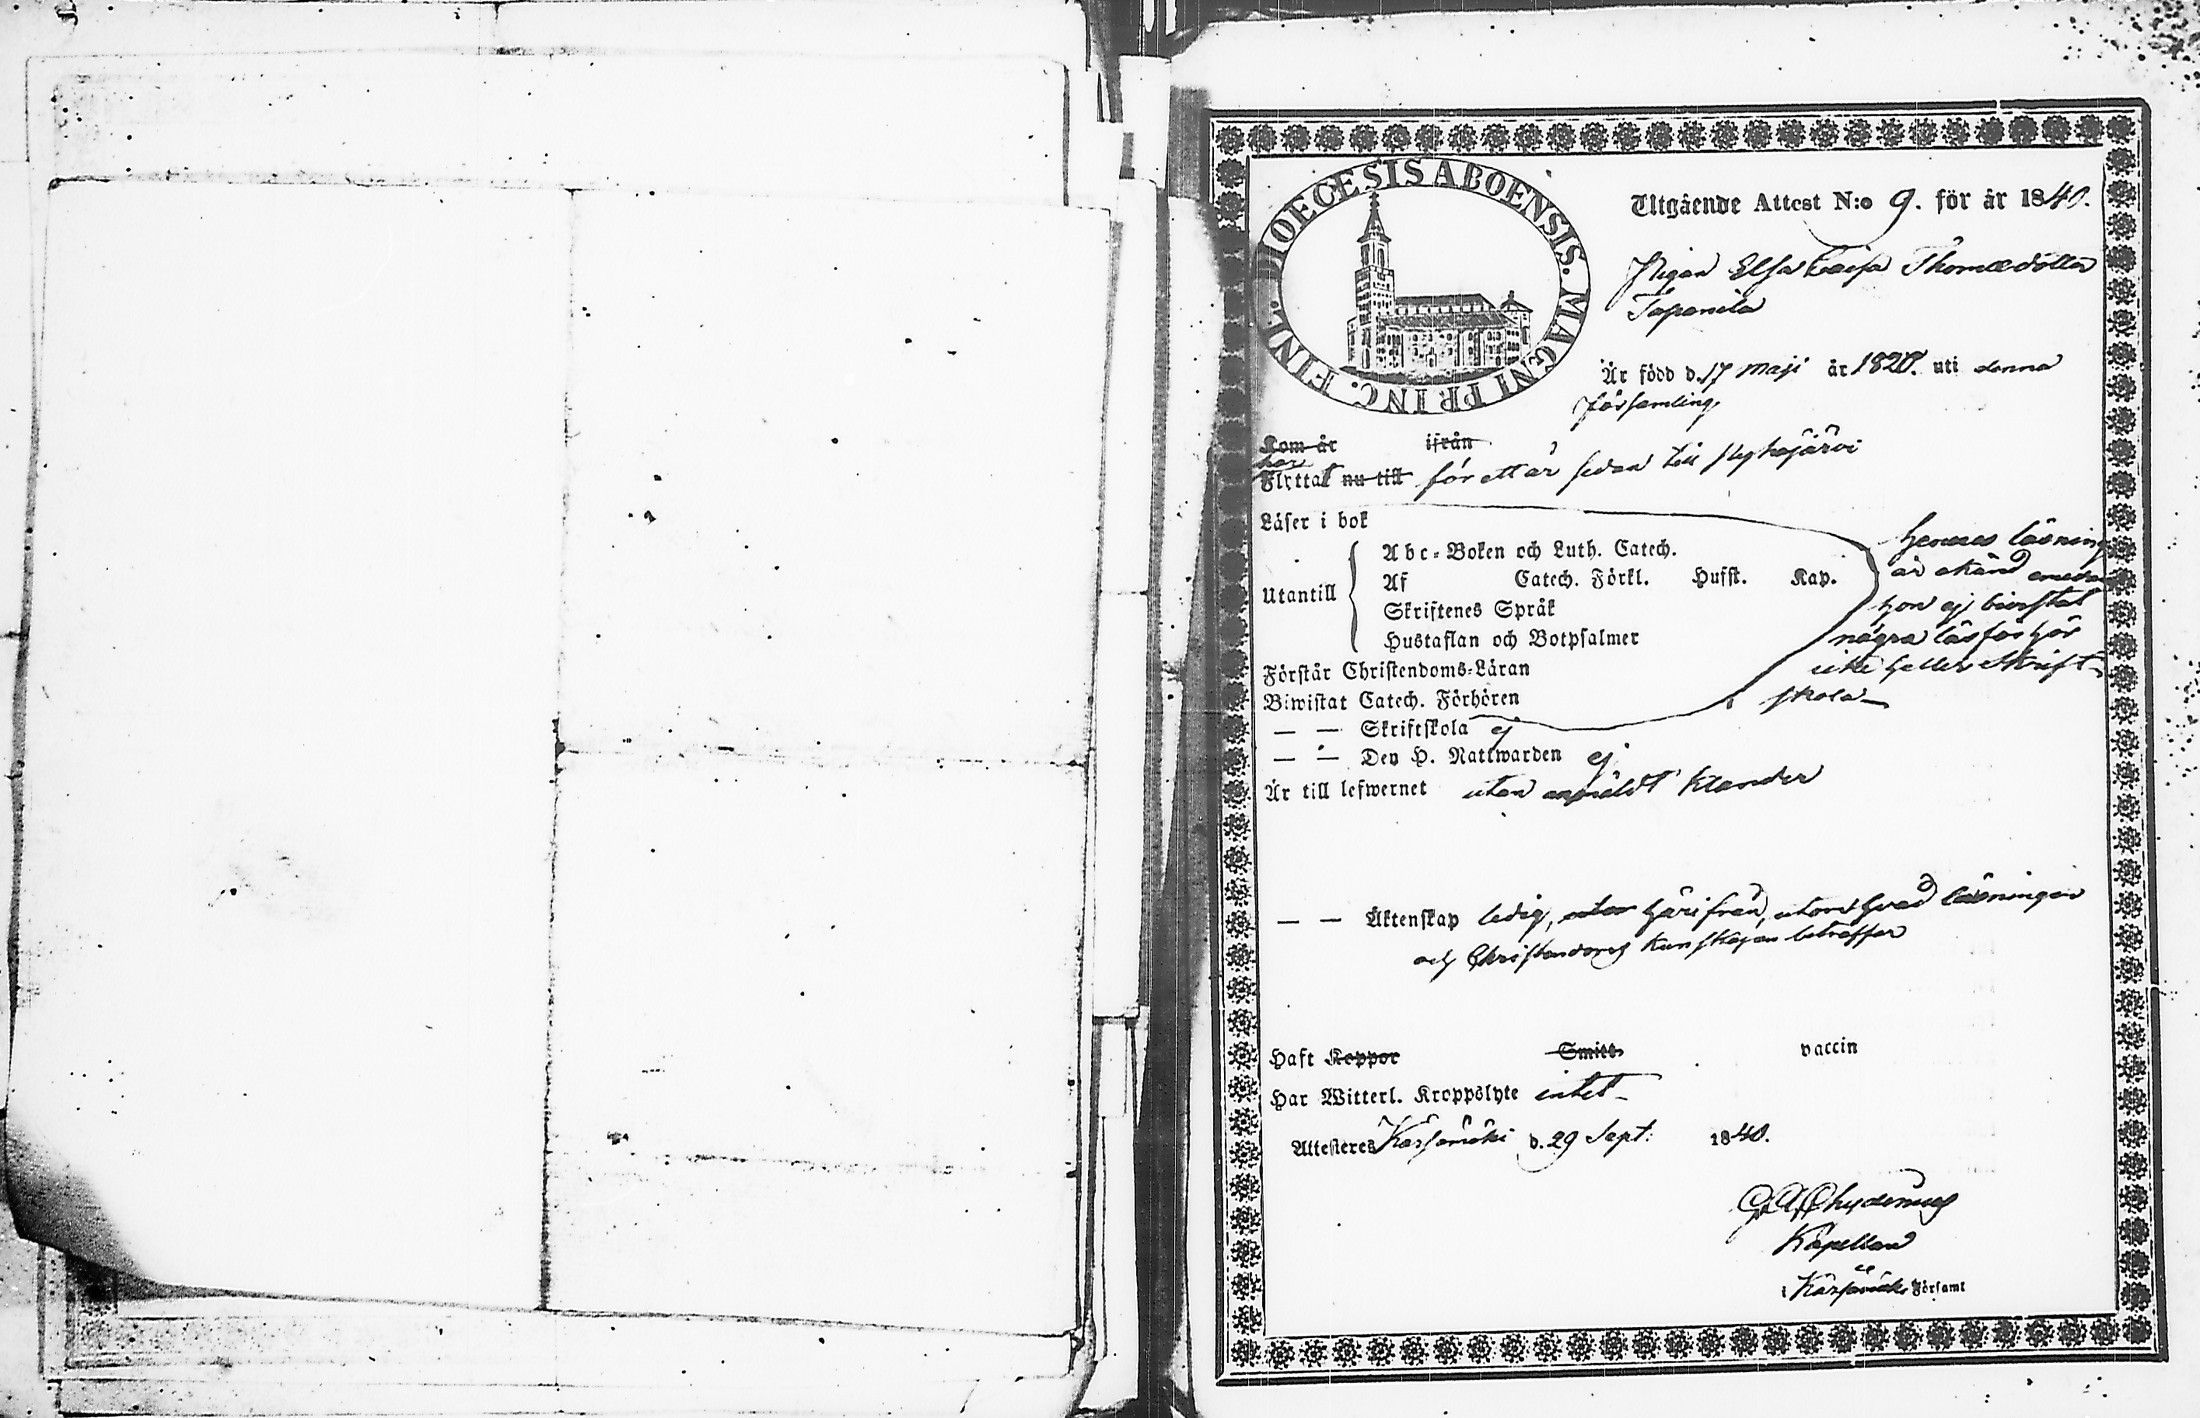 DIOECESIS ABOENSIS. MAGNI PRINC. FINL.
Utgående Attest N:o 9. för år 1840.
Pigan Elsa Caisa Thomædotter
Tapanila
Är född d. 17 Maji år 1820. uti denna
församling
Kom år ifrån
har
Flyttat nu till för ett år sedan till Pyhäjärvi
Läser i bok
Abc-Boken och Luth. Catech.
Utantill Af Catech. Förkl. Hufst. Kap.
Skriftenes Språk
Hustaflan och Botpsalmer
Förstår Christendoms-Läran
Biwistat Catech. Förhören
Hennes läsning
är okänd emedan
hon ej bivistat
några läsförhör
icke heller Skrift-
skola
— — Skriftskola ej
— — Den H. Nattwarden ej
Är till lefwernet utan anmäldt klander
— — Äktenskap ledig, härifrån, utom hvad läsningen
och Christendoms kunskapen beträffar
Haft Koppor Smitt vaccin
Har Witterl. Kroppslyte intet
Attesteras Kärsämäki d. 29 Sept: 1840.
Chydenius
Kapellan
i Kärsämäki Församl